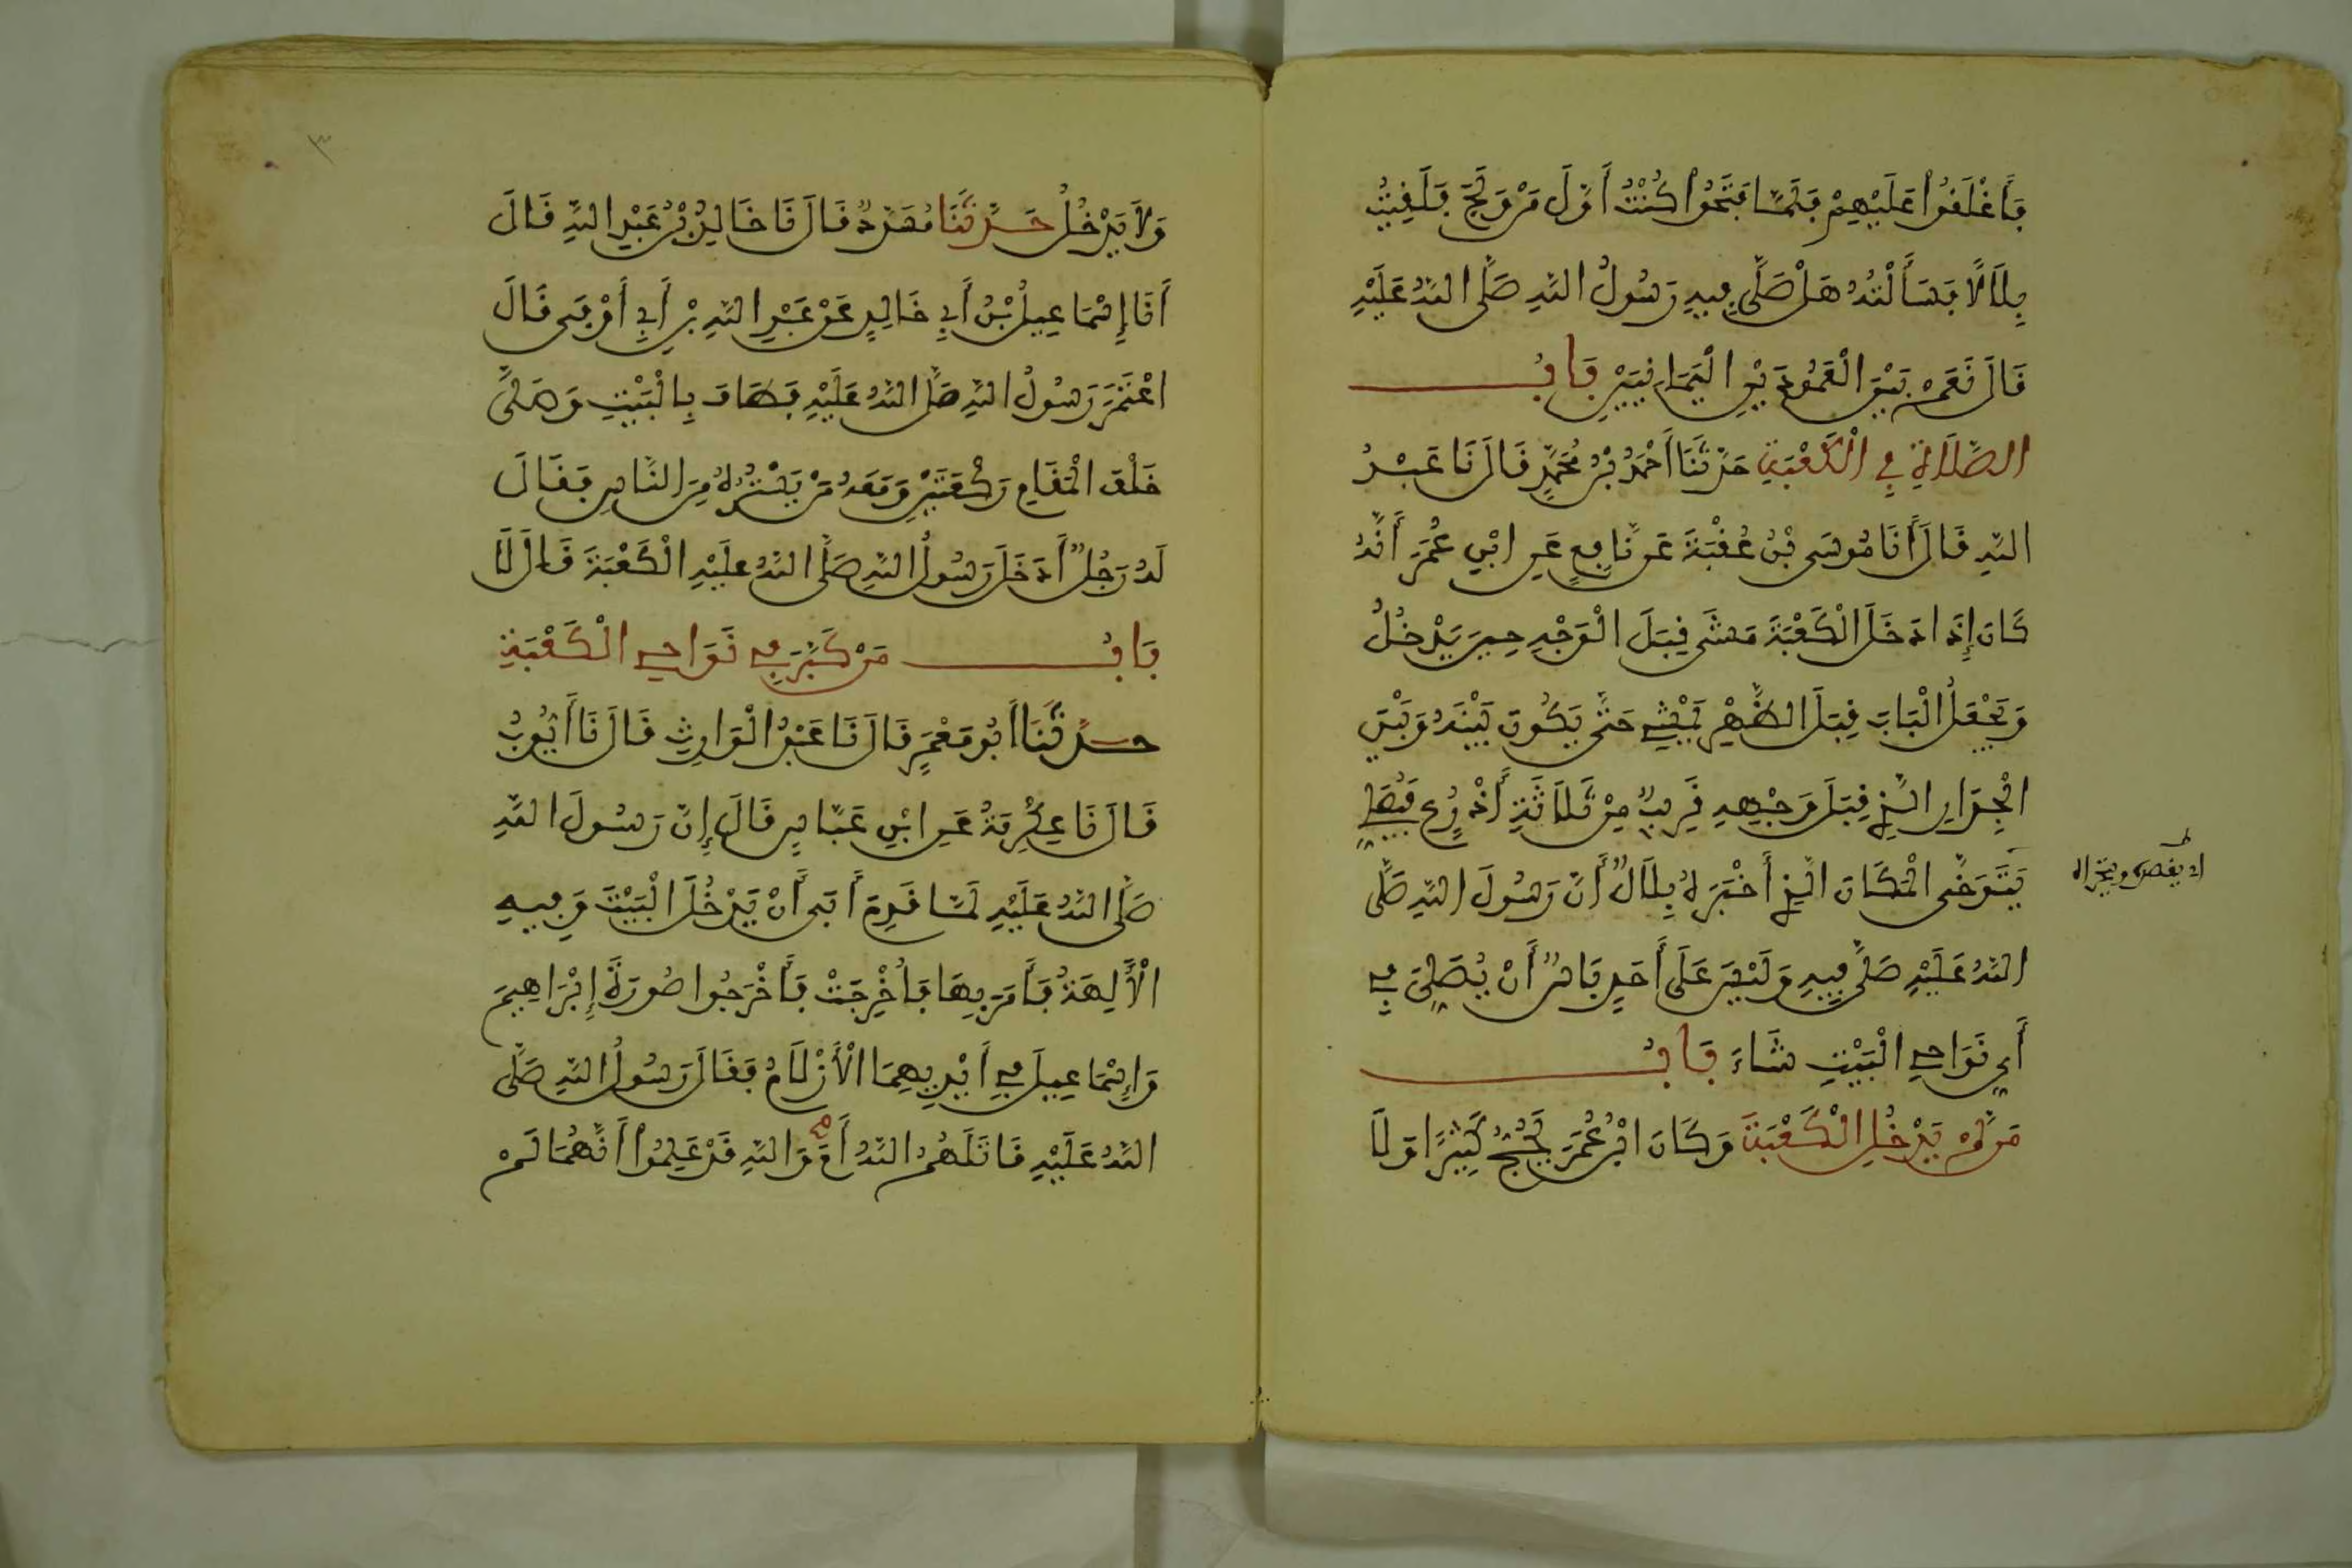 فَأَغْلَقُوا عَلَيْهِمْ فَلَمَّا فَتَحُوا كُنْتُ أَوَّلَ مَنْ وَلَجَ فَلَقِيتُ
بِلَالًا فَسَأَلْتُهُ هَلْ صَلَّى فِيهِ رَسُولُ اللَّهِ صَلَّى اللَّهُ عَلَيْهِ
قَالَ نَعَمْ بَيْنَ الْعَمُودَيْنِ الْيَمَانِيَيْنِ بَابُ
الصَّلَاةِ فِي الْكَعْبَةِ حَدَّثَنَا أَحْمَدُ بْنُ مُحَمَّدٍ قَالَ نَا عَبْدُ
اللَّهِ قَالَ أَنَا مُوسَى بْنُ عُقْبَةَ عَنْ نَافِعٍ عَنِ ابْنِ عُمَرَ أَنَّهُ
كَانَ إِذَا دَخَلَ الْكَعْبَةَ مَشَى قِبَلَ الْوَجْهِ حِينَ يَدْخُلُ
وَيَجْعَلُ الْبَابَ قِبَلَ الظَّهْرِ يَمْشِي حَتَّى يَكُونَ بَيْنَهُ وَبَيْنَ
الْجِدَارِ الَّذِي قِبَلَ وَجْهِهِ قَرِيبٌ مِنْ ثَلَاثَةِ أَذْرُعٍ فَيُصَلِّي
يَتَوَخَّى الْمَكَانَ الَّذِي أَخْبَرَهُ بِلَالٌ أَنَّ رَسُولَ اللَّهِ صَلَّى
اي يقصد ويتحرا
اللَّهُ عَلَيْهِ صَلَّى فِيهِ وَلَيْسَ عَلَى أَحَدٍ بَأْسٌ أَنْ يُصَلِّيَ فِي
أَيِّ نَوَاحِي الْبَيْتِ شَاءَ بَابُ
مَنْ لَمْ يَدْخُلِ الْكَعْبَةَ وَكَانَ ابْنُ عُمَرَ يَحُجُّ كَثِيرًا وَلَا
٣
وَلَا يَدْخُلُ حَدَّثَنَا مُسَدَّدٌ قَالَ نَا خَالِدُ بْنُ عَبْدِ اللَّهِ قَالَ
أَنَا إِسْمَاعِيلُ بْنُ أَبِي خَالِدٍ عَنْ عَبْدِ اللَّهِ بْنِ أَبِي أَوْفَى قَالَ
اعْتَمَرَ رَسُولُ اللَّهِ صَلَّى اللَّهُ عَلَيْهِ فَطَافَ بِالْبَيْتِ وَصَلَّى
خَلْفَ الْمَقَامِ رَكْعَتَيْنِ وَمَعَهُ مَنْ يَسْتُرُهُ مِنَ النَّاسِ فَقَالَ
لَهُ رَجُلٌ أَدَخَلَ رَسُولُ اللَّهِ صَلَّى اللَّهُ عَلَيْهِ الْكَعْبَةَ قَالَ لَا
بَابُ مَنْ كَبَّرَ فِي نَوَاحِي الْكَعْبَةِ
حَدَّثَنَا أَبُو مَعْمَرٍ قَالَ نَا عَبْدُ الْوَارِثِ قَالَ نَا أَيُّوبُ
قَالَ نَا عِكْرِمَةُ عَنِ ابْنِ عَبَّاسٍ قَالَ إِنَّ رَسُولَ اللَّهِ
صَلَّى اللَّهُ عَلَيْهِ لَمَّا قَدِمَ أَبَى أَنْ يَدْخُلَ الْبَيْتَ وَفِيهِ
الْآلِهَةُ فَأَمَرَ بِهَا فَأُخْرِجَتْ فَأَخْرَجُوا صُورَةَ إِبْرَاهِيمَ
وَإِسْمَاعِيلَ فِي أَيْدِيهِمَا الْأَزْلَامُ فَقَالَ رَسُولُ اللَّهِ صَلَّى
اللَّهُ عَلَيْهِ قَاتَلَهُمُ اللَّهُ أَمَ وَاللَّهِ قَدْ عَلِمُوا أَنَّهُمَا لَمْ